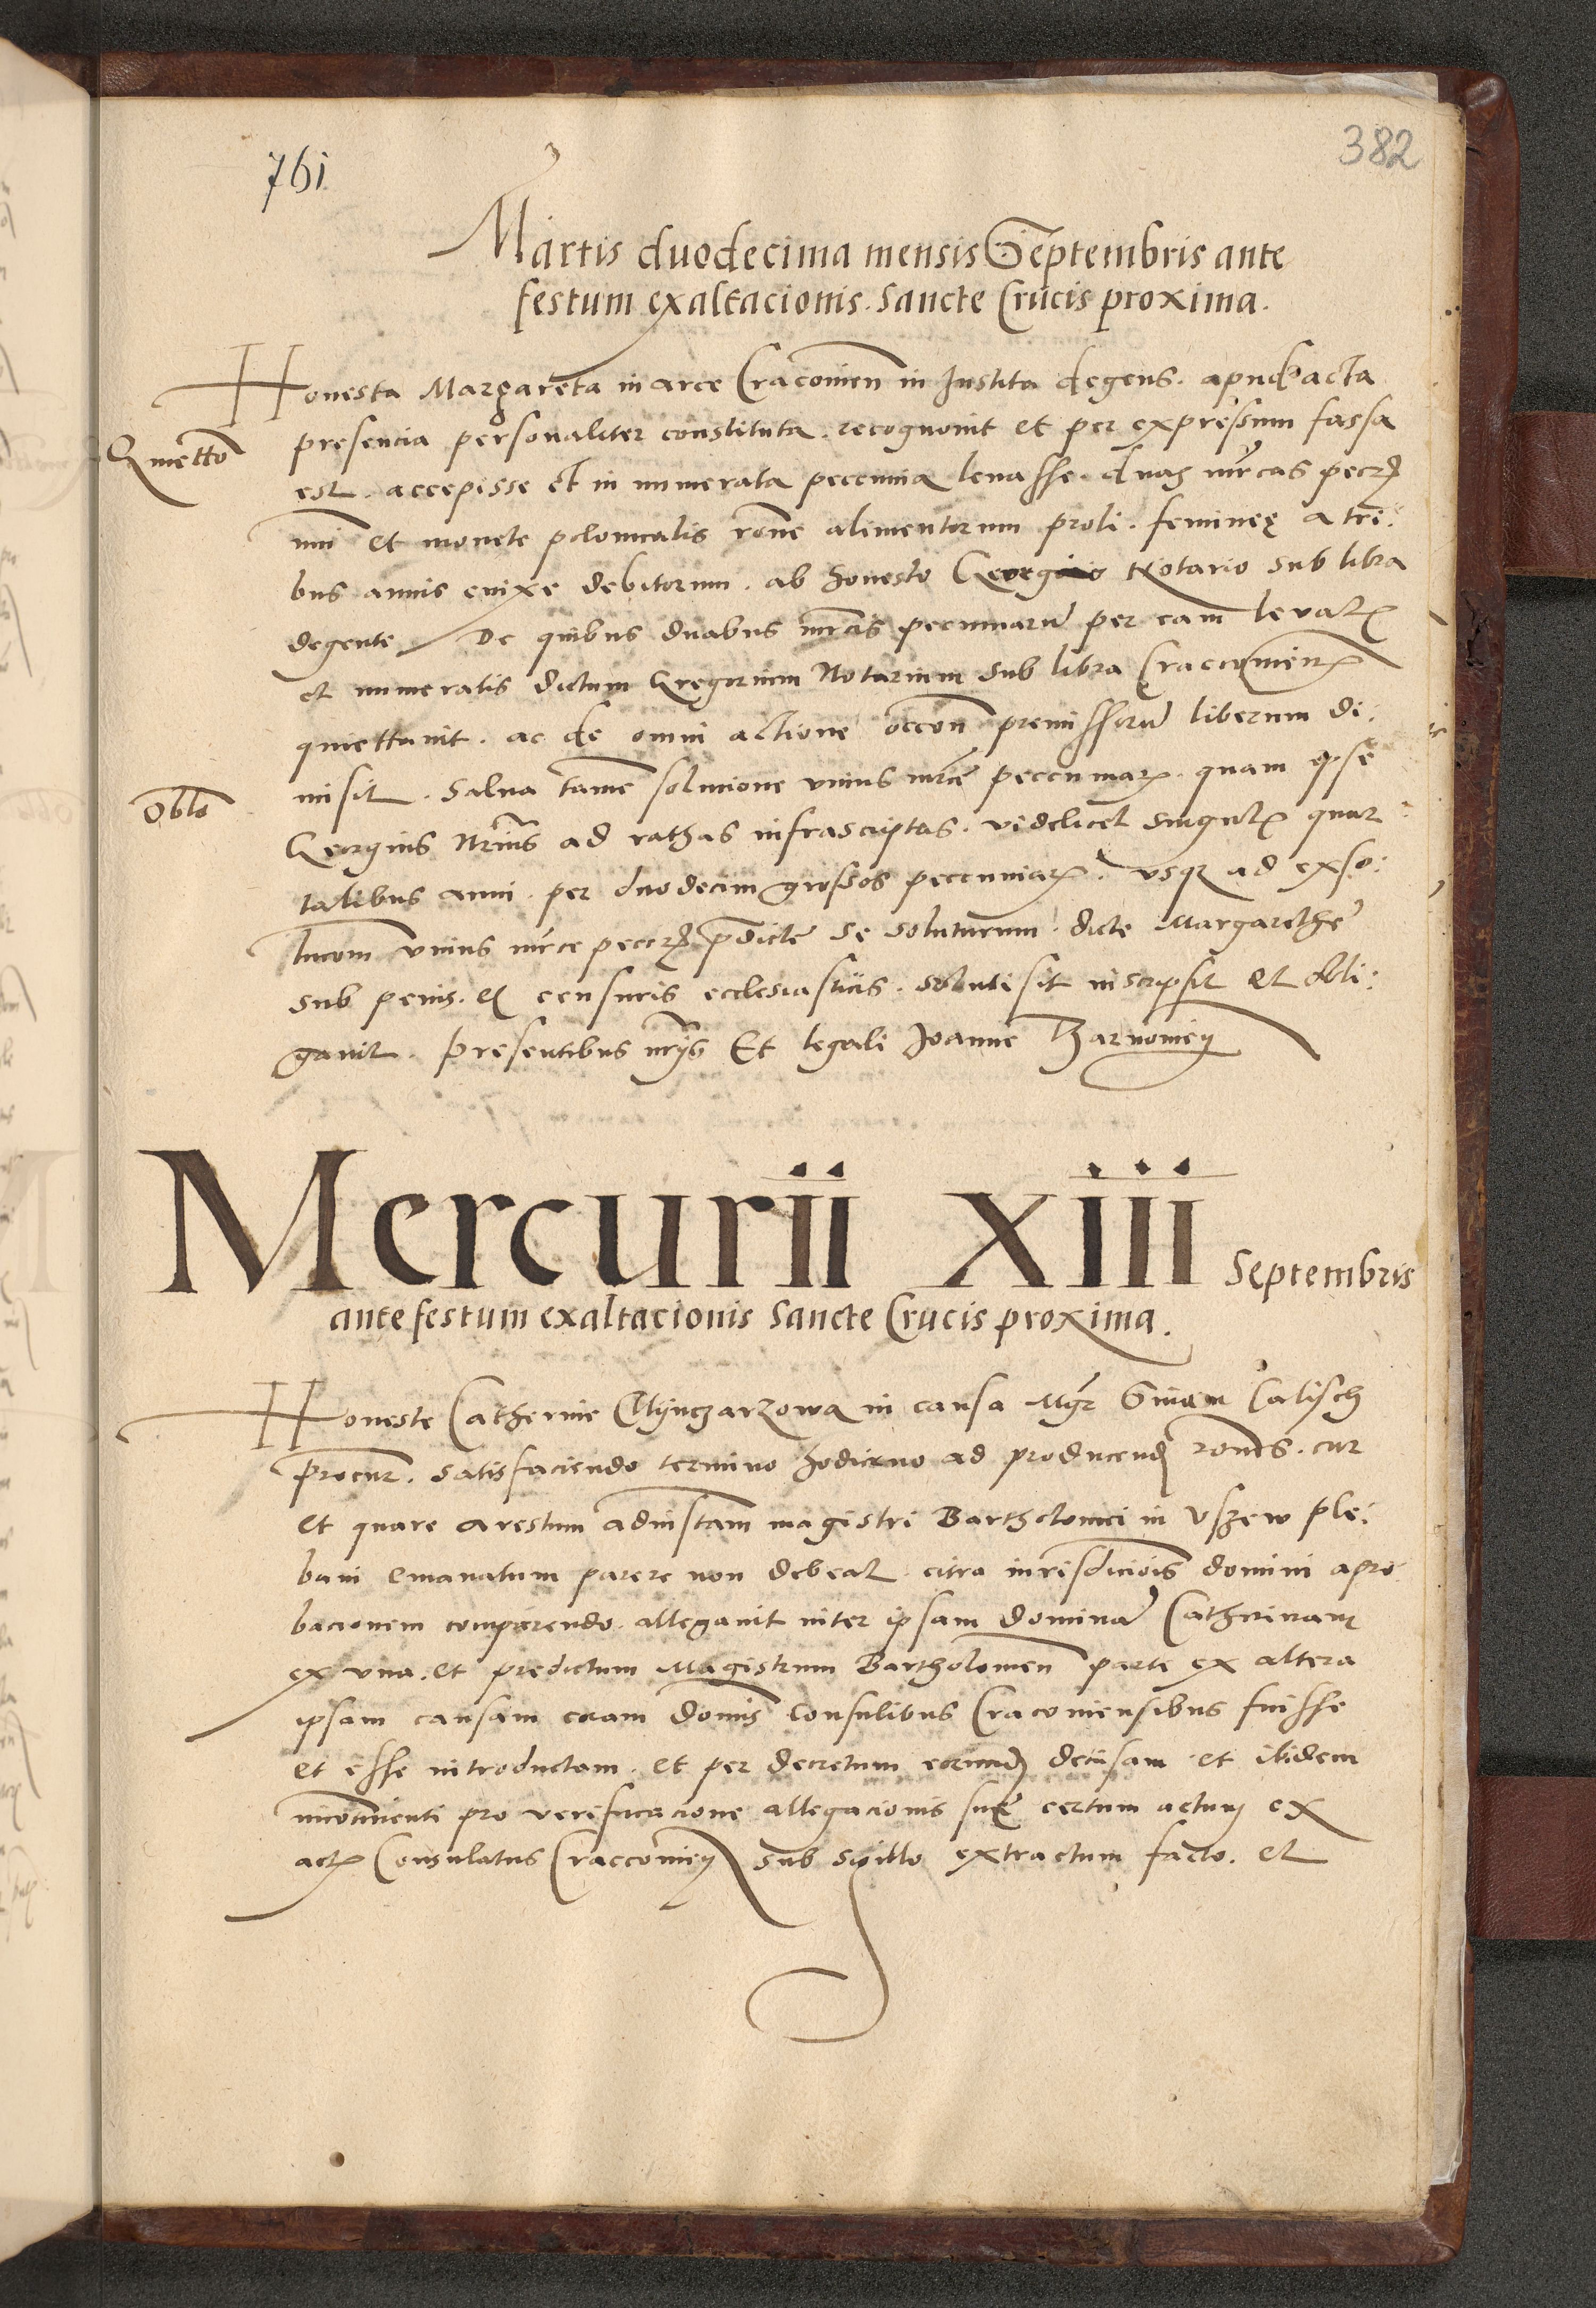 761
382
Martis duodecima mensis Septembris ante
festum exaltacionis Sancte Crucis proxima.
Honesta Margareta in arce Cracovien in Justita degens. apud acta
Qmetto
presencia personaliter constituta. recognovit et per expressum fassa
est. accepisse et in numerata peccunia levasse duas mrcas
et monete polonicalis rone alimentorum proli. femineę a tri:
bus annis enixe debitorum. ab honesto Georgio Notario sub libra
degente De quibus duabus mrcis peccuniaru per eam levatis
et numeratis dictum Gregorium Notarium sub libra Craccovien
quiettavit. ac de omni actione occon premissoru liberum di:
Oblo
misit. Salva tame solucione unius mrce peccuniar. quam ipse
Georgius Nrius ad rathas infrascriptas. videlicet singulis quar
talibus anni. per duodecim grossos peccuniar. usq ad exso:
lucom unius mrce pdicte se soluturum. dicte Margarethe
sub penis. et censuris ecclesiasticis. inscripsit et obli:
gavit. Presentibus nrijs Et legali Joanne
Mercurii xiii Septembris
ante festum exaltacionis Sancte Crucis proxima.
Honeste Catherine Mynczarzowa in causa Mgr Calisch
procur. satisfaciendo termino hodierno ad producend rones. cur
et quare arestum ad instam magistri Bartholomei in Uszew ple:
bani emanatum parere non debeat citra iurisdiciois domini apro
bacionem comparendo. allegavit inter ipsam dominā Catherinam
ex una. et predictum Magistrum Bartholomeu parte ex altera
ipsam causam coram domis Consulibus Cracoviensibus fuisse
et esse introductam. et per decretum eorund decisam et ibidem
incontinenti pro verificacione allegacionis suę certum actum ex
actis Consulatus Craccovien sub sigillo extractum facto. et